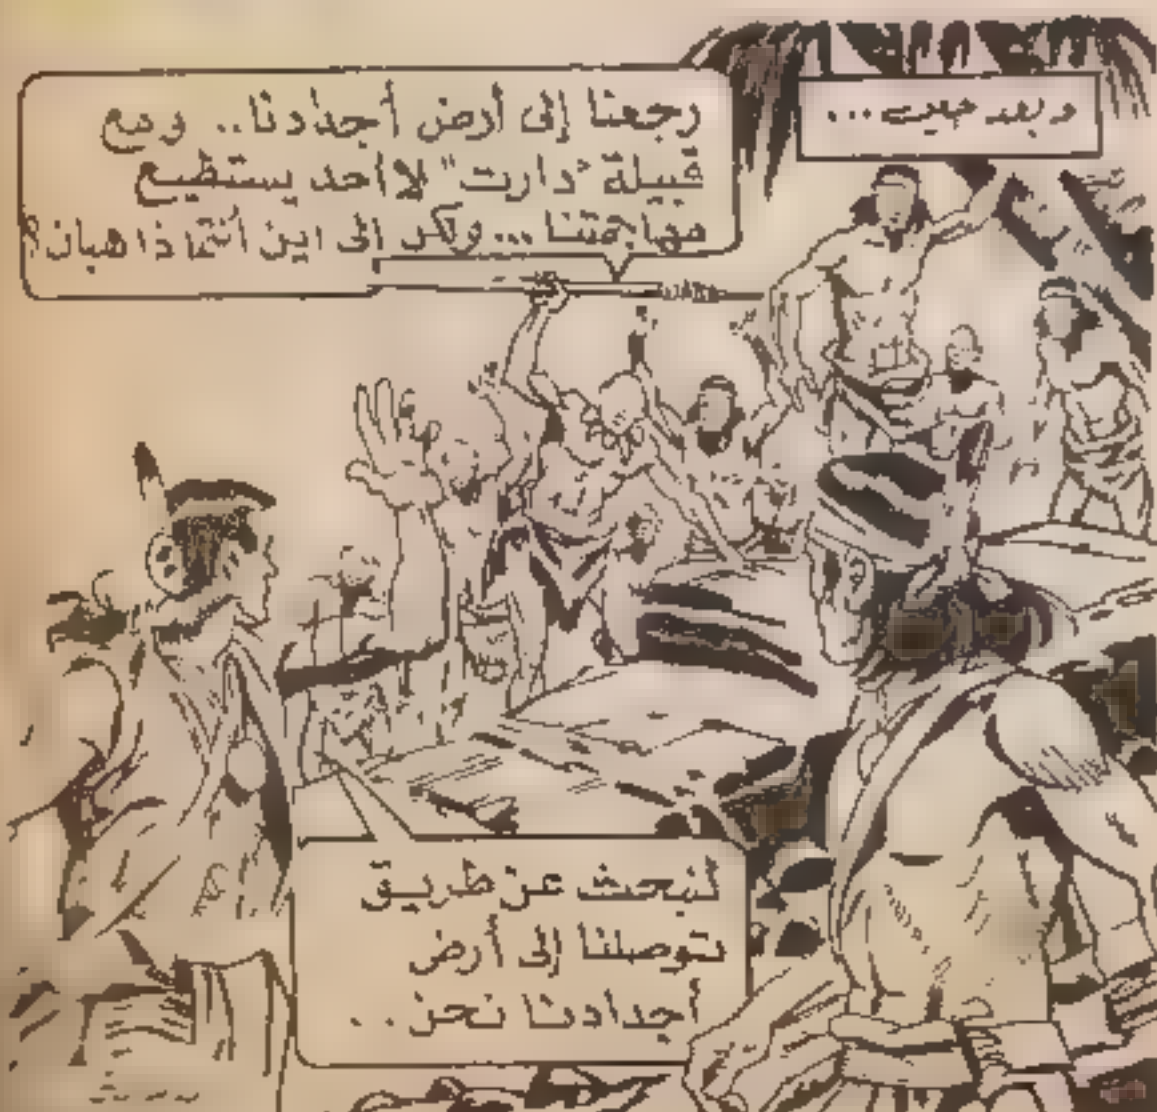 وبعد حين...
رجعنا إلى أرض أجدادنا.. ومع
قبيلة "دارت" لا أحد يستطيع
مهاجمتنا... ولكن الى اين أنتما ذاهبان؟
لنبحث عن طريق
توصلنا إلى أرض
أجدادنا نحن..